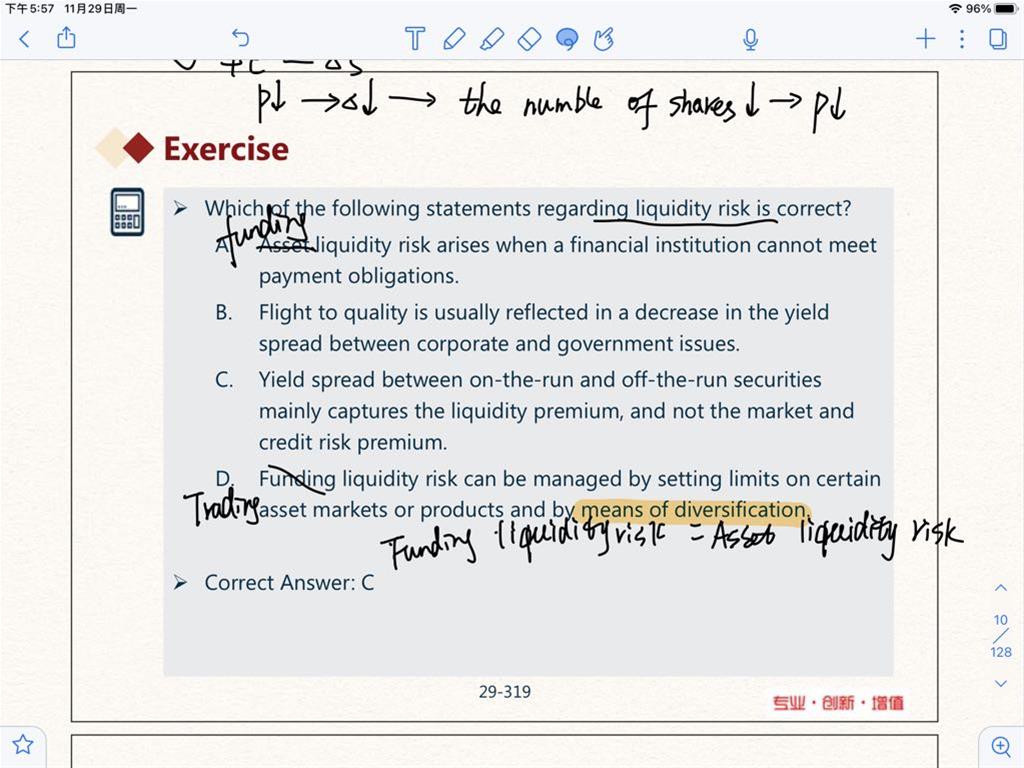 下午5:57 11月29日周一
96%
P↓ → Δ↓ → the numble of shares↓ → P↓
Exercise
Which of the following statements regarding liquidity risk is correct?
funding
A. Asset liquidity risk arises when a financial institution cannot meet
payment obligations.
B. Flight to quality is usually reflected in a decrease in the yield
spread between corporate and government issues.
C. Yield spread between on-the-run and off-the-run securities
mainly captures the liquidity premium, and not the market and
credit risk premium.
D. Funding liquidity risk can be managed by setting limits on certain
Trading asset markets or products and by means of diversification.
Funding liquidity risk = Asset liquidity risk
Correct Answer: C
10
128
29-319
专业·创新·增值